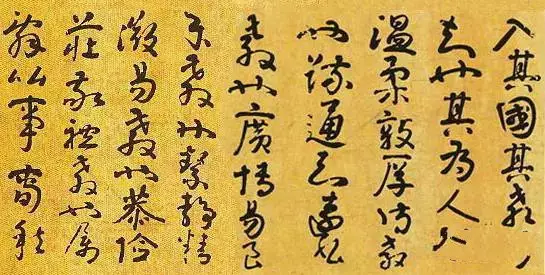 入其國其教可
知也其為人也
溫柔敦厚詩教
也疏通知遠書
教也廣博易良
樂教也絜靜精
微易教也恭儉
莊敬禮教也屬
辭比事春秋